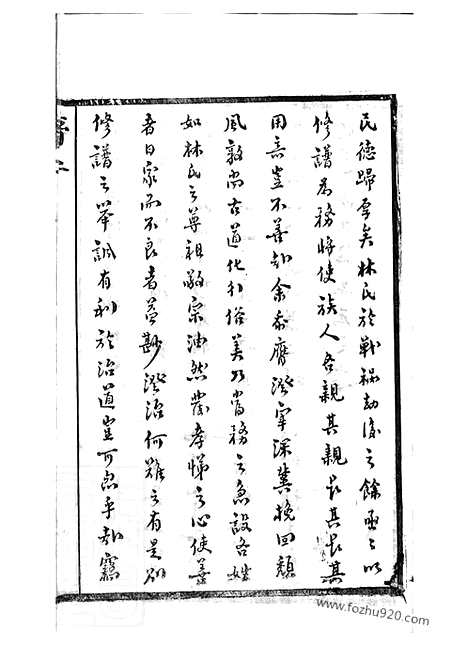 民德歸厚矣林氏於戰禍劫後之餘亟亟以
修譜爲務將使族人各親其親長其長其
用意豈不善哉余忝膺澄宰深冀挽回頹
風敦尚古道化行俗美乃當務之急設各姓
如林氏之尊祖敬宗油然發孝悌之心使善
者日衆而不良者益尠澄治何難之有是則
修譜之舉誠有利於治道豈可忽乎哉竊
www.fozhu920.com